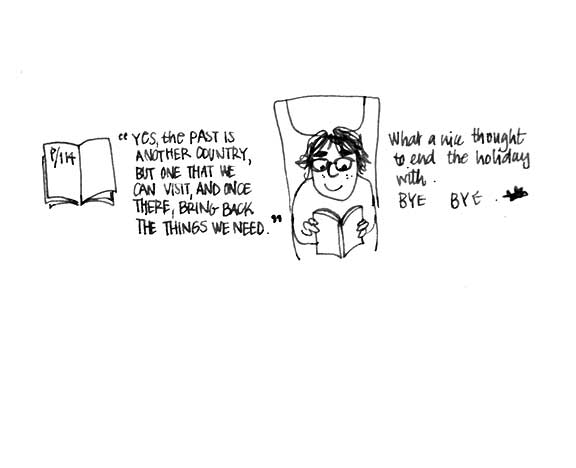 P/114
“ YES, the PAST IS
ANOTHER COUNTRY,
BUT ONE THAT WE
CAN VISIT, AND ONCE
THERE, BRING BACK
THE THINGS WE NEED. ”
What a nice thought
to end the holiday
with.
BYE BYE.